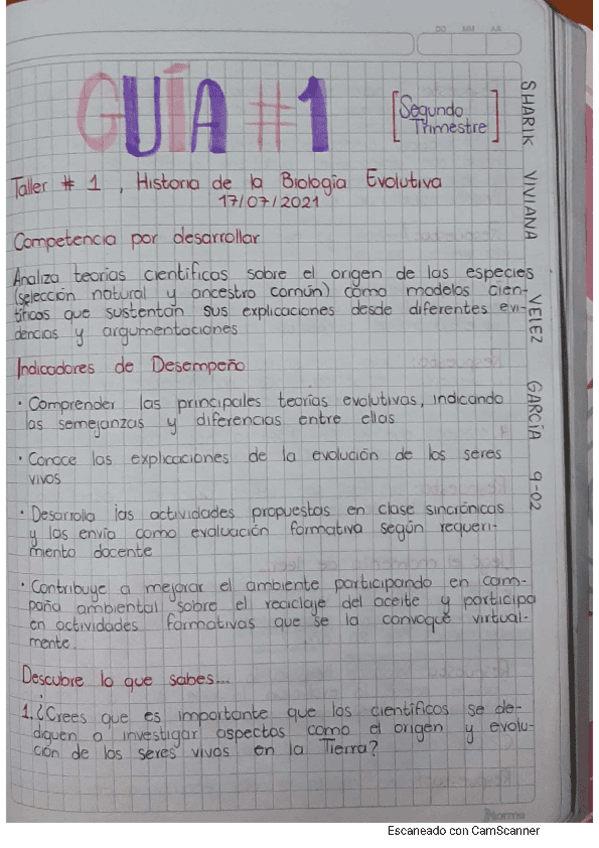 DD MM AA
GUÍA #1
[Segundo
Trimestre]
Taller # 1, Historia de la Biología Evolutiva
17/07/2021
Competencia por desarrollar
Analiza teorías científicas sobre el origen de las especies
(selección natural y ancestro común) como modelos cien-
tíficos que sustentan sus explicaciones desde diferentes evi-
dencias y argumentaciones
Indicadores de Desempeño
· Comprender las principales teorías evolutivas, indicando
las semejanzas y diferencias entre ellas
· Conoce las explicaciones de la evolución de los seres
vivos
· Desarrolla las actividades propuestas en clase sincrónicas
y las envía como evaluación formativa según requeri-
miento docente
· Contribuye a mejorar el ambiente participando en cam-
paña ambiental sobre el reciclaje del aceite y participa
en actividades formativas que se la convoque virtual-
mente.
Descubre lo que sabes...
1. ¿Crees que es importante que los científicos se de-
diquen a investigar aspectos como el origen y evolu-
ción de los seres vivos en la Tierra?
SHARIK VIVIANA VELEZ GARCÍA 9-02
Norma
Escaneado con CamScanner